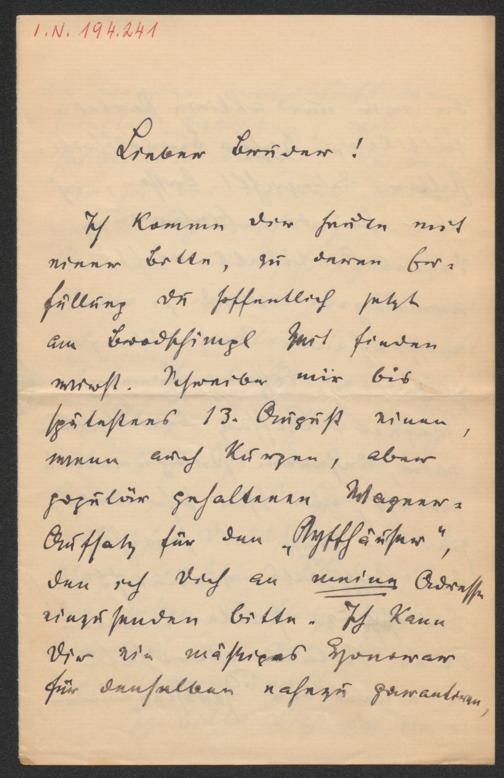 I.N. 194.241
Lieber Bruder!
Ich komme dir heute mit
einer Bitte, zu deren Er-
füllung du hoffentlich jetzt
am Zeit finden
wirst. Schreibe mir bis
spätestens 13. August einen,
wenn auch kurzen, aber
populär gehaltenen Wagner-
Aufsatz für den „Kyffhäuser",
den ich Dich an meine Adresse
einzusenden bitte. Ich kann
Dir ein mäßiges Honorar
für denselben nahezu garantiren,